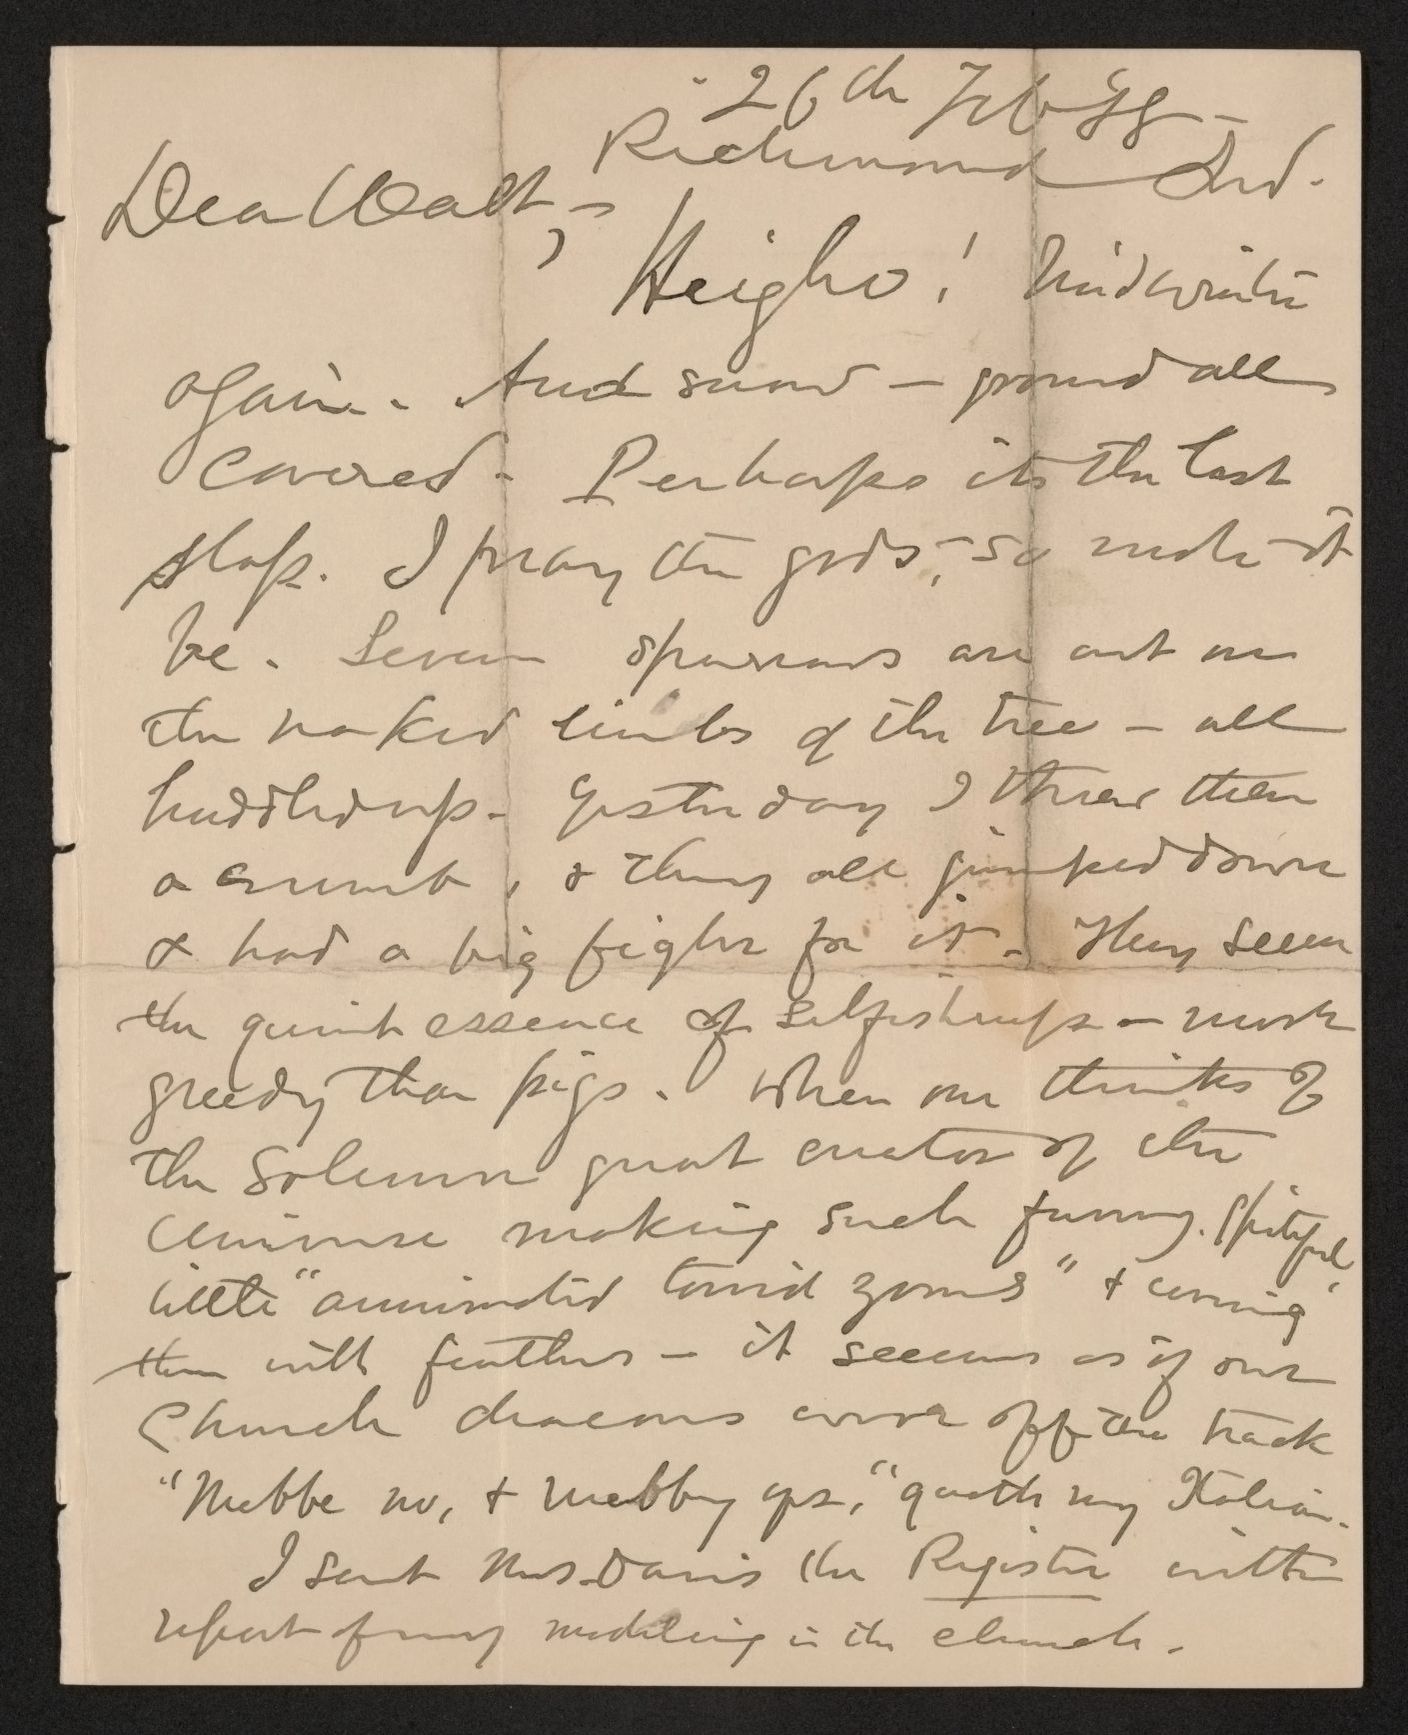 26th Feb 88 -
Richmond Ind.
Dear Walt, -
Heigho! Midwinter
again. - And snow — ground all
covered - Perhaps its the last
slap. I pray the gods, - so mote it
be. Seven sparrows are out on
the naked limbs of the tree — all
huddled up. - Yesterday I threw them
a crumb, & they all jumped down
& had a big fight for it. - They seem
the quintessence of selfishness — more
greedy than pigs. When one thinks of
the solemn great creator of the
universe making such funny, spiteful,
little "animated torrid zones" &
them with feathers — it seems as if our
Church deacons were off the track
"Mebbe no, & mebby yes," quoth my Italian.
I sent Mrs. Davis the Register with
report of my modeling in the church.